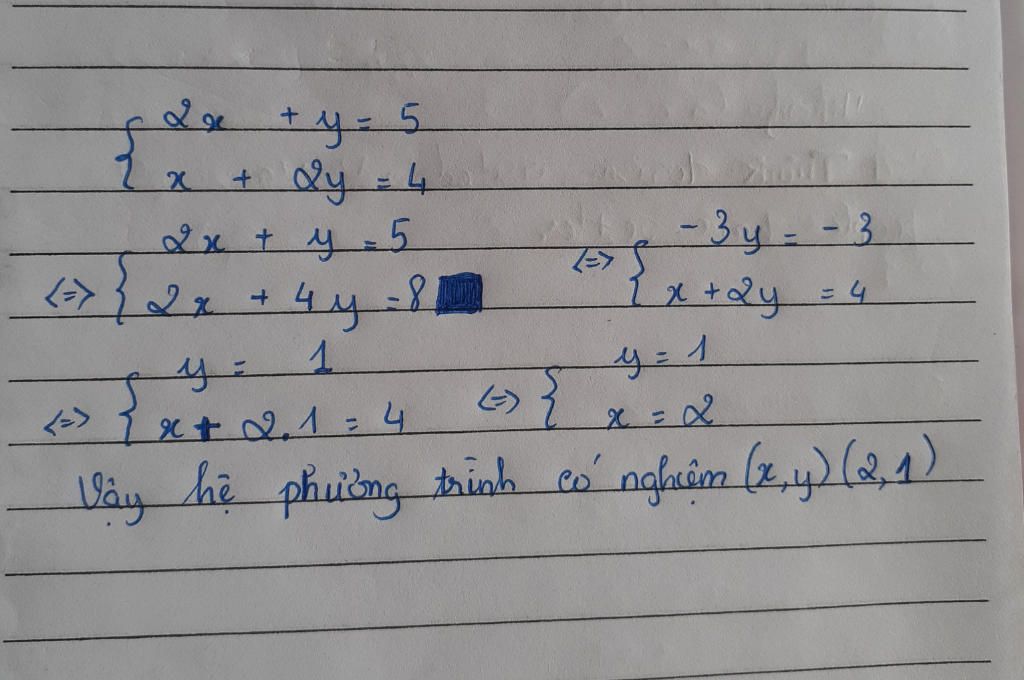 { 2x + y = 5
x + 2y = 4
<=> { 2x + y = 5
2x + 4y = 8
<=> { -3y = -3
x + 2y = 4
<=> { y = 1
x + 2.1 = 4
<=> { y = 1
x = 2
Vậy hệ phương trình có nghiệm (x,y)(2,1)